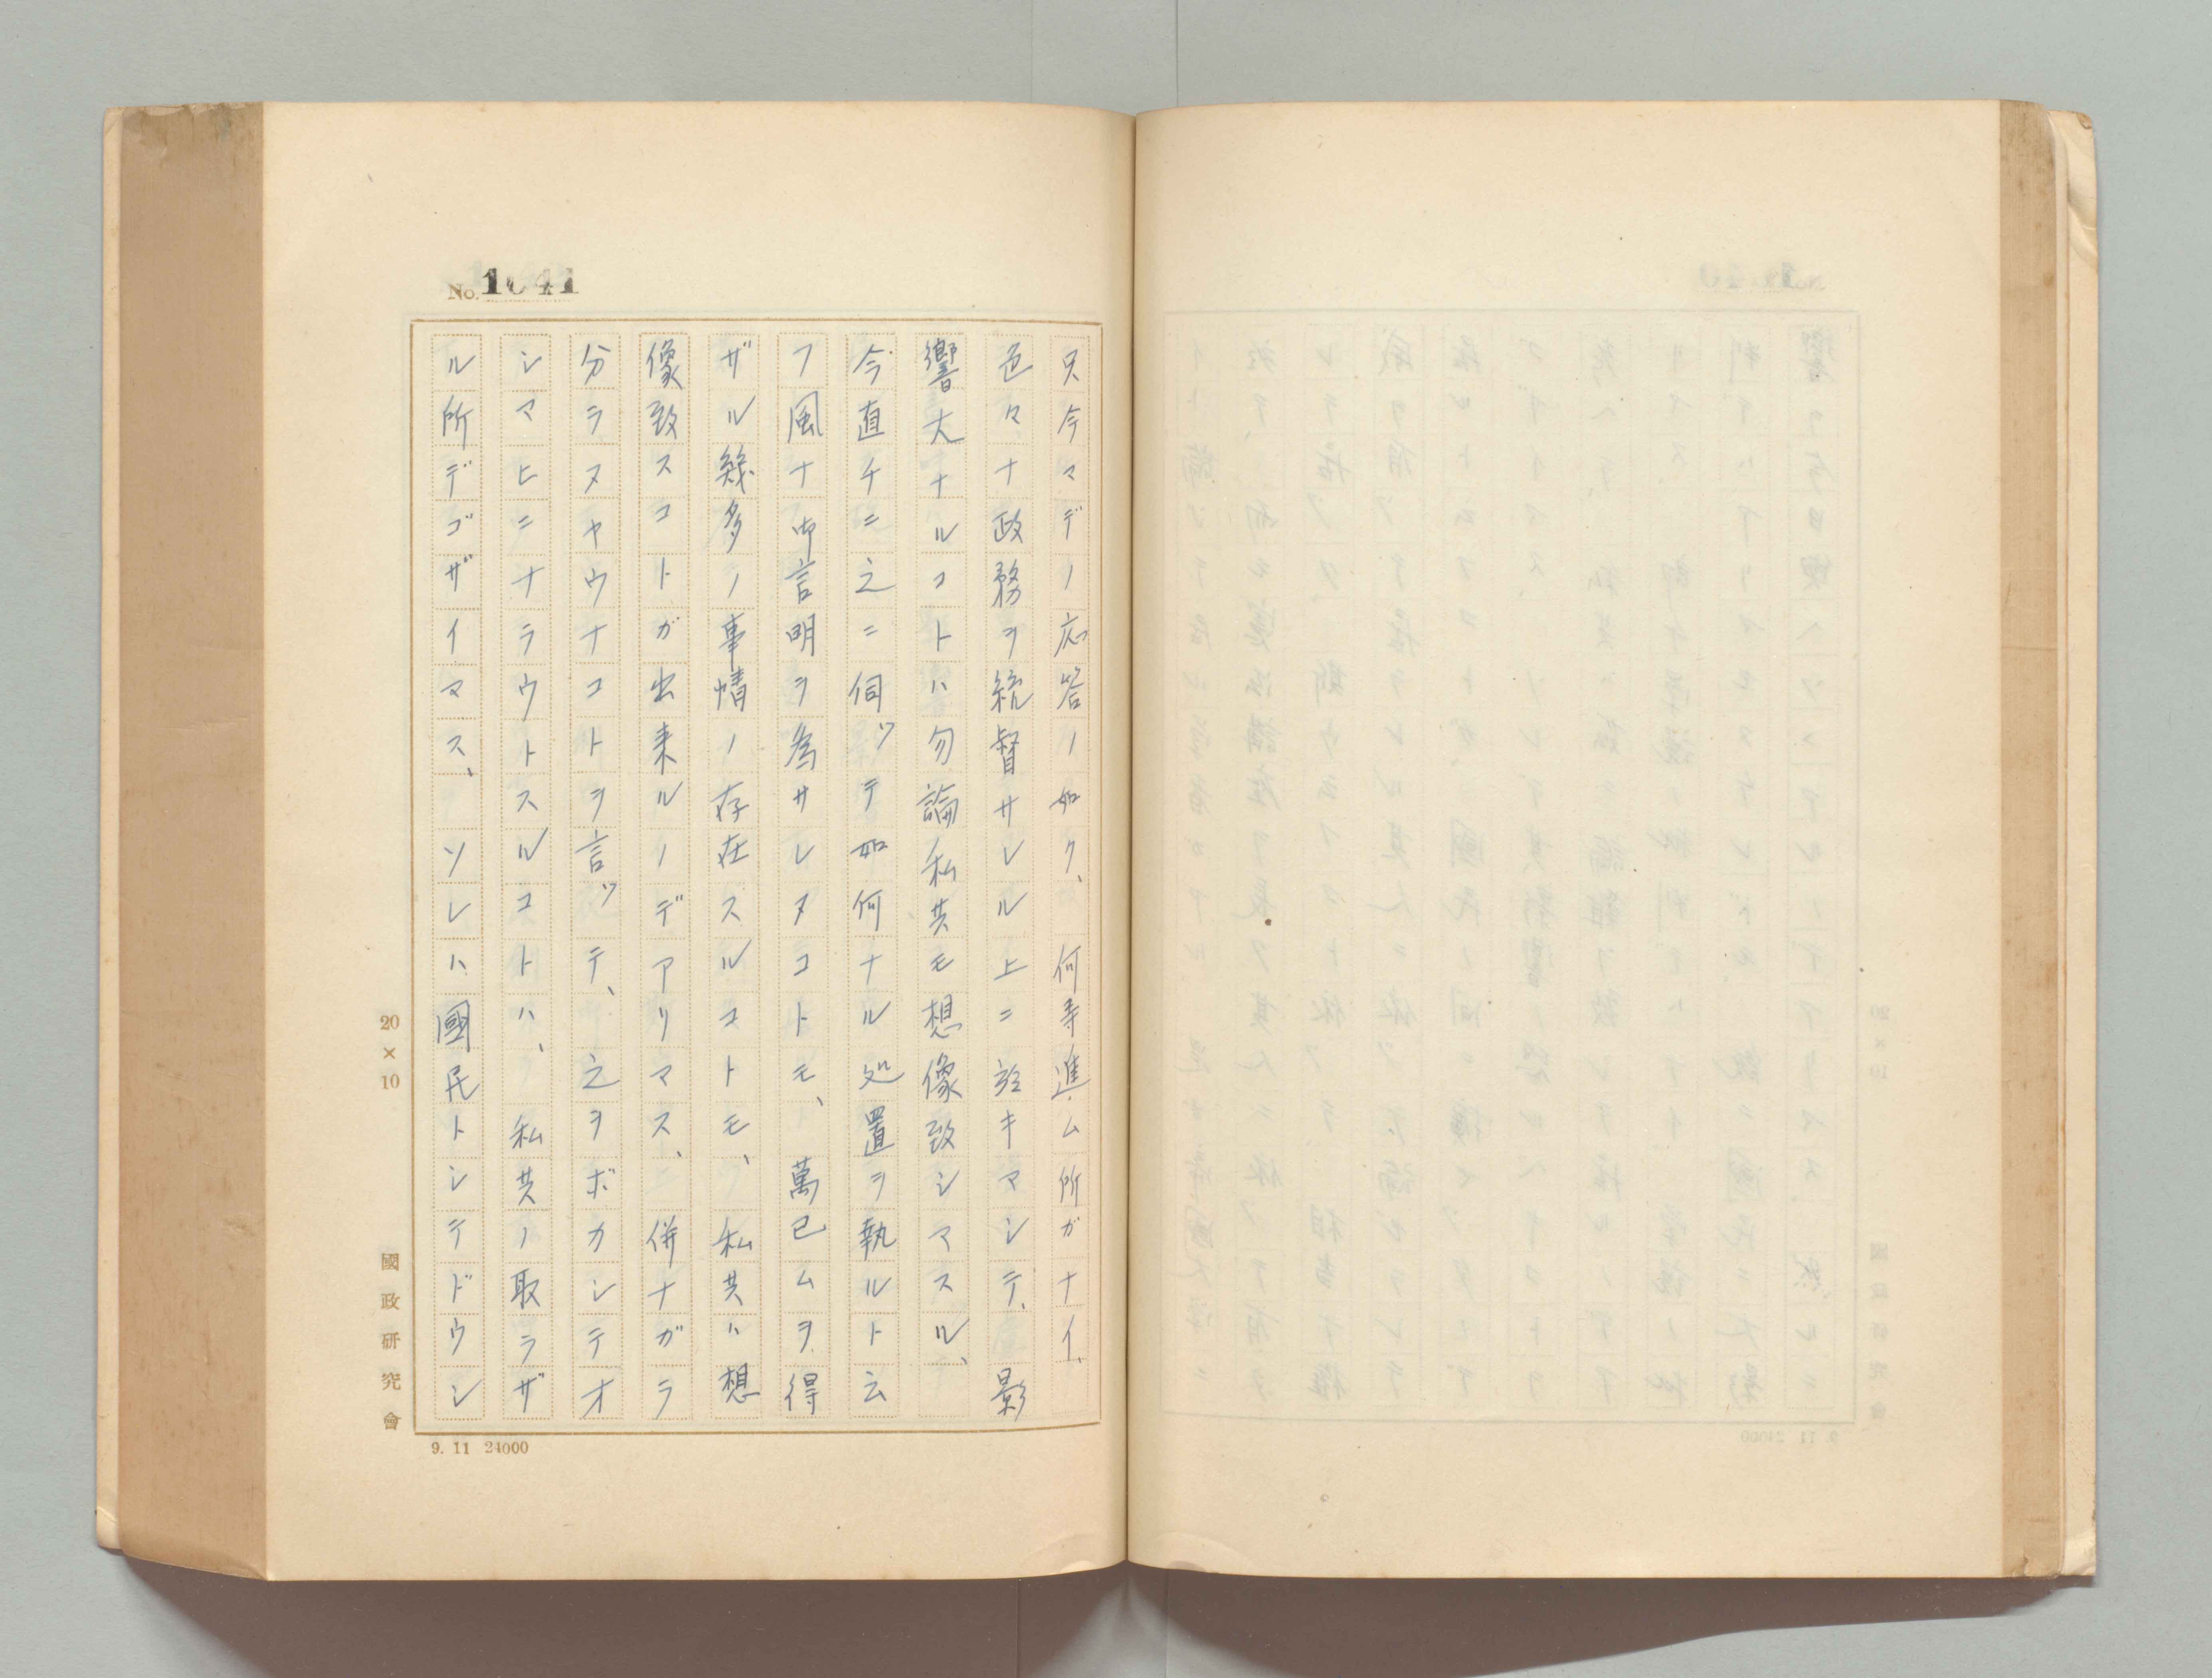 No. 1041
只今マデノ応答ノ如ク、何等進ム所ガナイ、
色々ナ政務ヲ統督サレル上ニ於キマシテ、影
響大ナルコトハ勿論私共モ想像致シマスル、
今直チニ之ニ伺ツテ如何ナル処置ヲ執ルト云
フ風ナ御言明ヲ為サレヌコトモ、萬已ムヲ得
ザル幾多ノ事情ノ存在スルコトモ、私共ハ想
像致スコトガ出来ルノデアリマス、併ナガラ
分ラヌヤウナコトヲ言ツテ、之ヲボカシテオ
シマヒニナラウトスルコトハ、私共ノ取ラザ
ル所デゴザイマス、ソレハ國民トシテドウシ
20×10
國政研究會
9. 11 24000